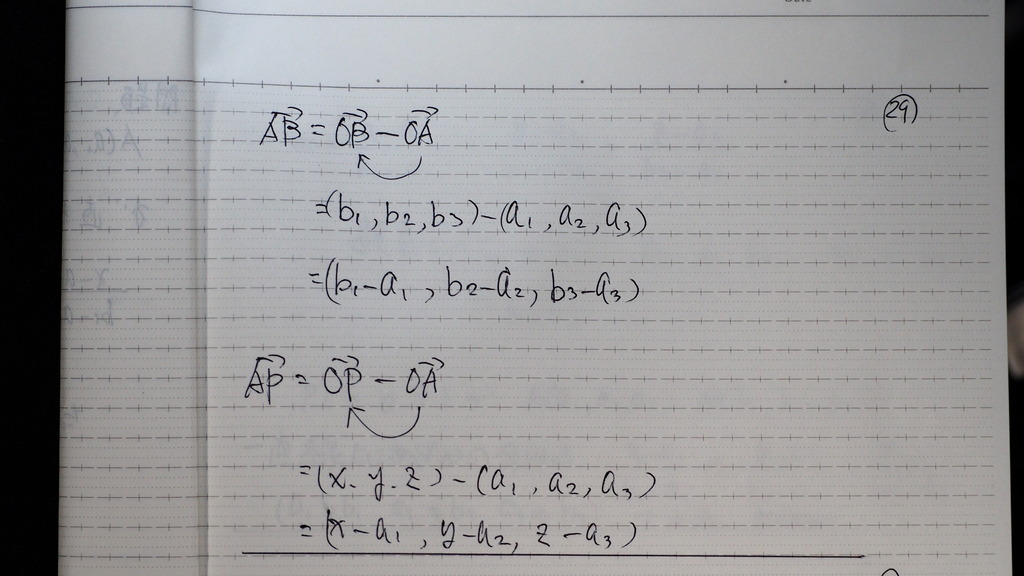 ㉙
\vec{AB} = \vec{OB} - \vec{OA}
=(b₁, b₂, b₃)-(a₁, a₂, a₃)
=(b₁-a₁, b₂-a₂, b₃-a₃)
\vec{AP} = \vec{OP} - \vec{OA}
=(x. y. z)-(a₁, a₂, a₃)
=(x-a₁, y-a₂, z-a₃)